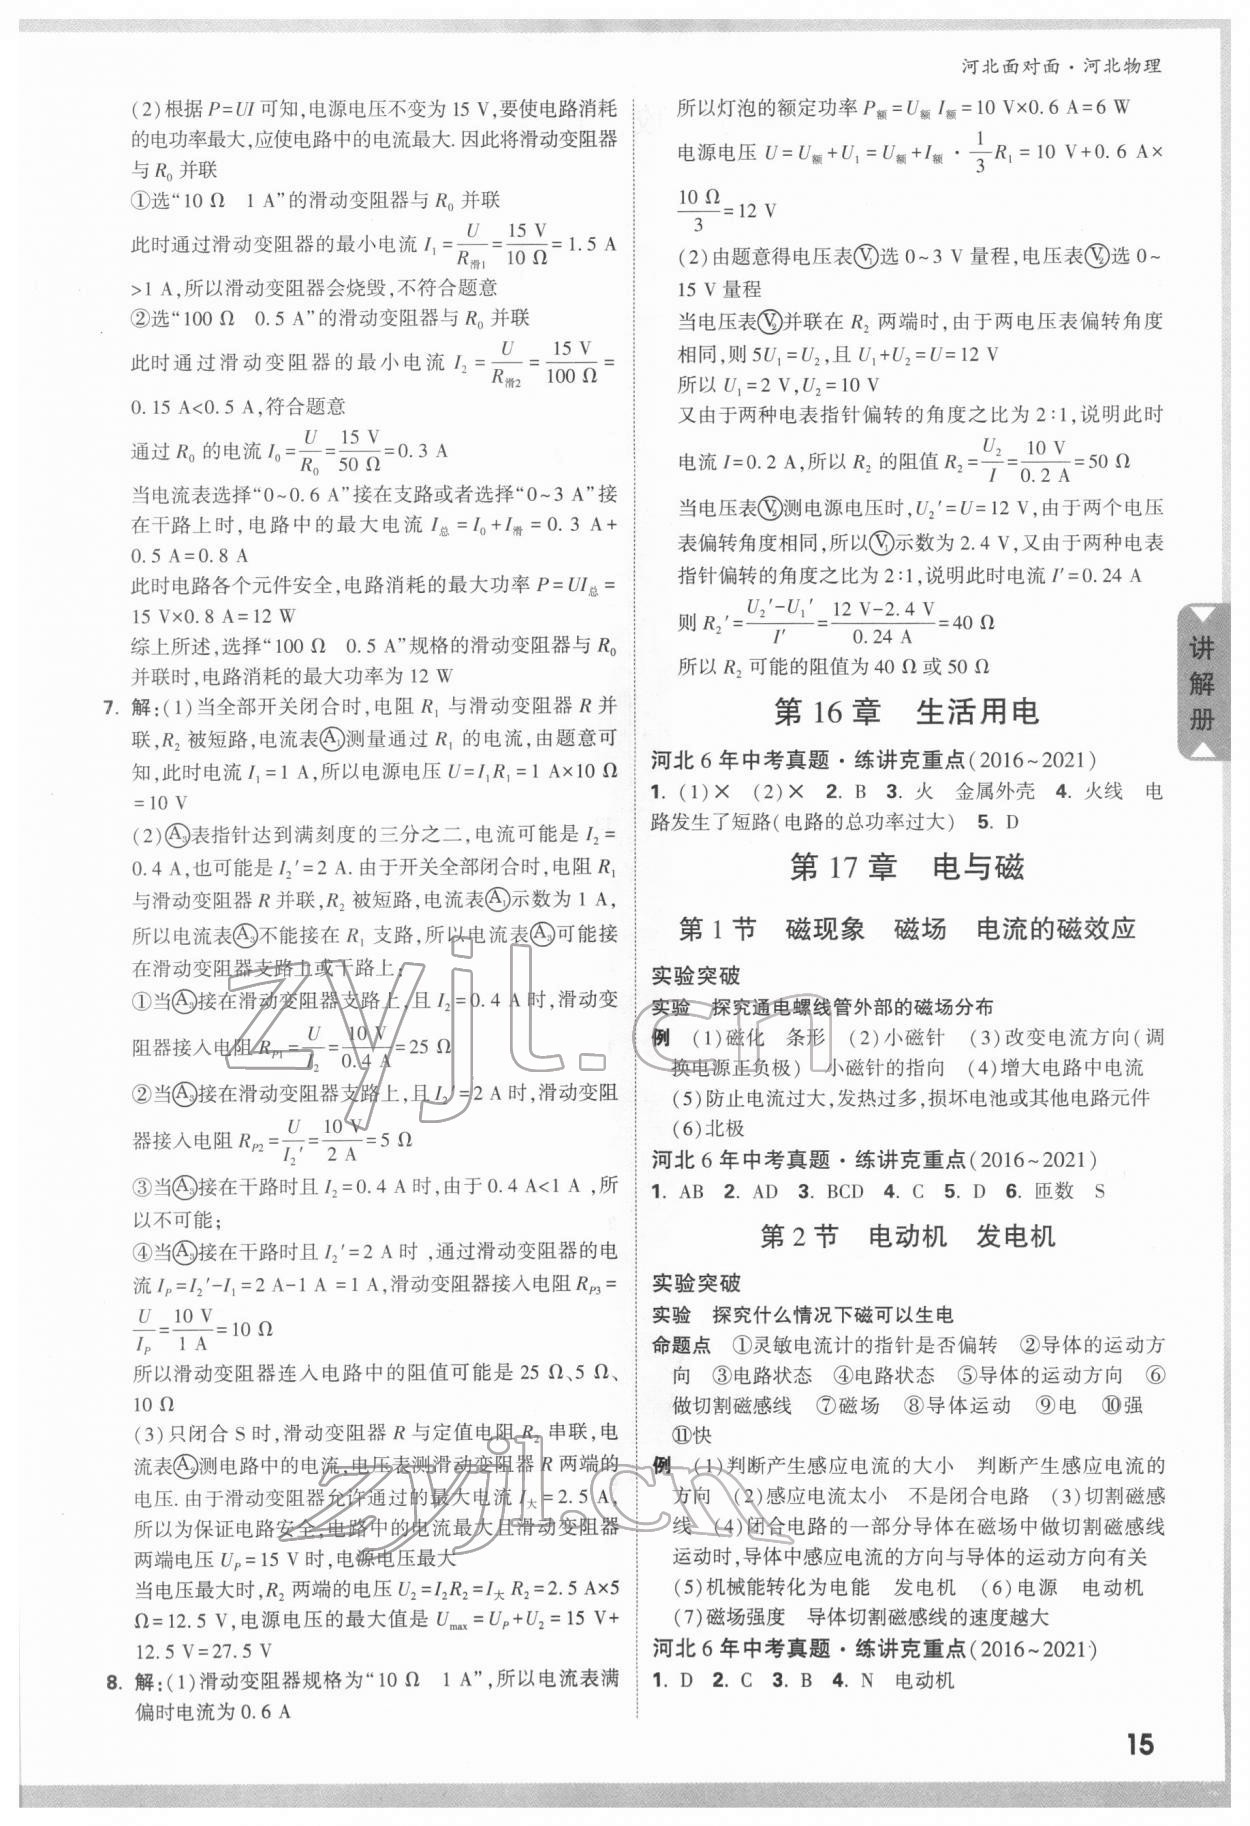 河北面对面·河北物理
(2)根据 P=UI 可知,电源电压不变为 15 V,要使电路消耗
的电功率最大,应使电路中的电流最大. 因此将滑动变阻器
与 R₀ 并联
①选“10 Ω　1 A”的滑动变阻器与 R₀ 并联
此时通过滑动变阻器的最小电流 I₁ = U/R滑1 = 15 V/10 Ω = 1.5 A
>1 A,所以滑动变阻器会烧毁,不符合题意
②选“100 Ω　0.5 A”的滑动变阻器与 R₀ 并联
此时通过滑动变阻器的最小电流 I₂ = U/R滑2 = 15 V/100 Ω =
0.15 A<0.5 A,符合题意
通过 R₀ 的电流 I₀ = U/R₀ = 15 V/50 Ω = 0.3 A
当电流表选择“0~0.6 A”接在支路或者选择“0~3 A”接
在干路上时,电路中的最大电流 I总 = I₀+I滑 = 0.3 A+
0.5 A=0.8 A
此时电路各个元件安全,电路消耗的最大功率 P=UI总=
15 V×0.8 A=12 W
综上所述,选择“100 Ω　0.5 A”规格的滑动变阻器与 R₀
并联时,电路消耗的最大功率为 12 W
7. 解:(1)当全部开关闭合时,电阻 R₁ 与滑动变阻器 R 并
联,R₂ 被短路,电流表Ⓐ₁测量通过 R₁ 的电流,由题意可
知,此时电流 I₁=1 A,所以电源电压 U=I₁R₁=1 A×10 Ω
=10 V
(2)Ⓐ₃表指针达到满刻度的三分之二,电流可能是 I₂=
0.4 A,也可能是 I₂′=2 A. 由于开关全部闭合时,电阻 R₁
与滑动变阻器 R 并联,R₂ 被短路,电流表Ⓐ₁示数为 1 A,
所以电流表Ⓐ₃不能接在 R₁ 支路,所以电流表Ⓐ₃可能接
在滑动变阻器支路上或干路上;
①当Ⓐ₃接在滑动变阻器支路上,且 I₂=0.4 A 时,滑动变
阻器接入电阻 R_P1 = U/I₂ = 10 V/0.4 A = 25 Ω
②当Ⓐ₃接在滑动变阻器支路上,且 I₂′=2 A 时,滑动变阻
器接入电阻 R_P2 = U/I₂′ = 10 V/2 A = 5 Ω
③当Ⓐ₃接在干路上时且 I₂=0.4 A 时,由于 0.4 A<1 A ,所
以不可能;
④当Ⓐ₃接在干路上时且 I₂′=2 A 时 ,通过滑动变阻器的电
流 I_P=I₂′-I₁=2 A-1 A =1 A,滑动变阻器接入电阻 R_P3=
U/I_P = 10 V/1 A = 10 Ω
所以滑动变阻器连入电路中的阻值可能是 25 Ω、5 Ω、
10 Ω
(3)只闭合 S 时,滑动变阻器 R 与定值电阻 R₂ 串联,电
流表Ⓐ₂测电路中的电流,电压表测滑动变阻器 R 两端的
电压. 由于滑动变阻器允许通过的最大电流 I大=2.5 A,
所以为保证电路安全,电路中的电流最大且滑动变阻器
两端电压 U_P=15 V 时,电源电压最大
当电压最大时,R₂ 两端的电压 U₂=I₂R₂=I大 R₂=2.5 A×5
Ω=12.5 V,电源电压的最大值是 U_max = U_P+U₂ = 15 V+
12.5 V=27.5 V
8. 解:(1)滑动变阻器规格为“10 Ω　1 A”,所以电流表满
偏时电流为 0.6 A
所以灯泡的额定功率 P额=U额 I额=10 V×0.6 A=6 W
电源电压 U=U额+U₁=U额+I额 · 1/3 R₁ = 10 V+0.6 A×
10 Ω/3 = 12 V
(2)由题意得电压表Ⓥ₁选 0~3 V 量程,电压表Ⓥ₂选 0~
15 V 量程
当电压表Ⓥ₂并联在 R₂ 两端时,由于两电压表偏转角度
相同,则 5U₁=U₂,且 U₁+U₂=U=12 V
所以 U₁=2 V,U₂=10 V
又由于两种电表指针偏转的角度之比为 2:1,说明此时
电流 I=0.2 A,所以 R₂ 的阻值 R₂ = U₂/I = 10 V/0.2 A = 50 Ω
当电压表Ⓥ₂测电源电压时,U₂′=U=12 V,由于两个电压
表偏转角度相同,所以Ⓥ₁示数为 2.4 V,又由于两种电表
指针偏转的角度之比为 2:1,说明此时电流 I′=0.24 A
则 R₂′ = U₂′-U₁′/I′ = 12 V-2.4 V/0.24 A = 40 Ω
所以 R₂ 可能的阻值为 40 Ω 或 50 Ω
第 16 章　生活用电
河北 6 年中考真题·练讲克重点(2016~2021)
1. (1)×　(2)×　2. B　3. 火　金属外壳　4. 火线　电
路发生了短路(电路的总功率过大)　5. D
第 17 章　电与磁
第 1 节　磁现象　磁场　电流的磁效应
实验突破
实验　探究通电螺线管外部的磁场分布
例　(1)磁化　条形　(2)小磁针　(3)改变电流方向(调
换电源正负极)　小磁针的指向　(4)增大电路中电流
(5)防止电流过大,发热过多,损坏电池或其他电路元件
(6)北极
河北 6 年中考真题·练讲克重点(2016~2021)
1. AB　2. AD　3. BCD　4. C　5. D　6. 匝数　S
第 2 节　电动机　发电机
实验突破
实验　探究什么情况下磁可以生电
命题点　①灵敏电流计的指针是否偏转　②导体的运动方
向　③电路状态　④电路状态　⑤导体的运动方向　⑥
做切割磁感线　⑦磁场　⑧导体运动　⑨电　⑩强
⑪快
例　(1)判断产生感应电流的大小　判断产生感应电流的
方向　(2)感应电流太小　不是闭合电路　(3)切割磁感
线　(4)闭合电路的一部分导体在磁场中做切割磁感线
运动时,导体中感应电流的方向与导体的运动方向有关
(5)机械能转化为电能　发电机　(6)电源　电动机
(7)磁场强度　导体切割磁感线的速度越大
河北 6 年中考真题·练讲克重点(2016~2021)
1. D　2. C　3. B　4. N　电动机
讲解册
15
zyjl.cn
zyjl.cn